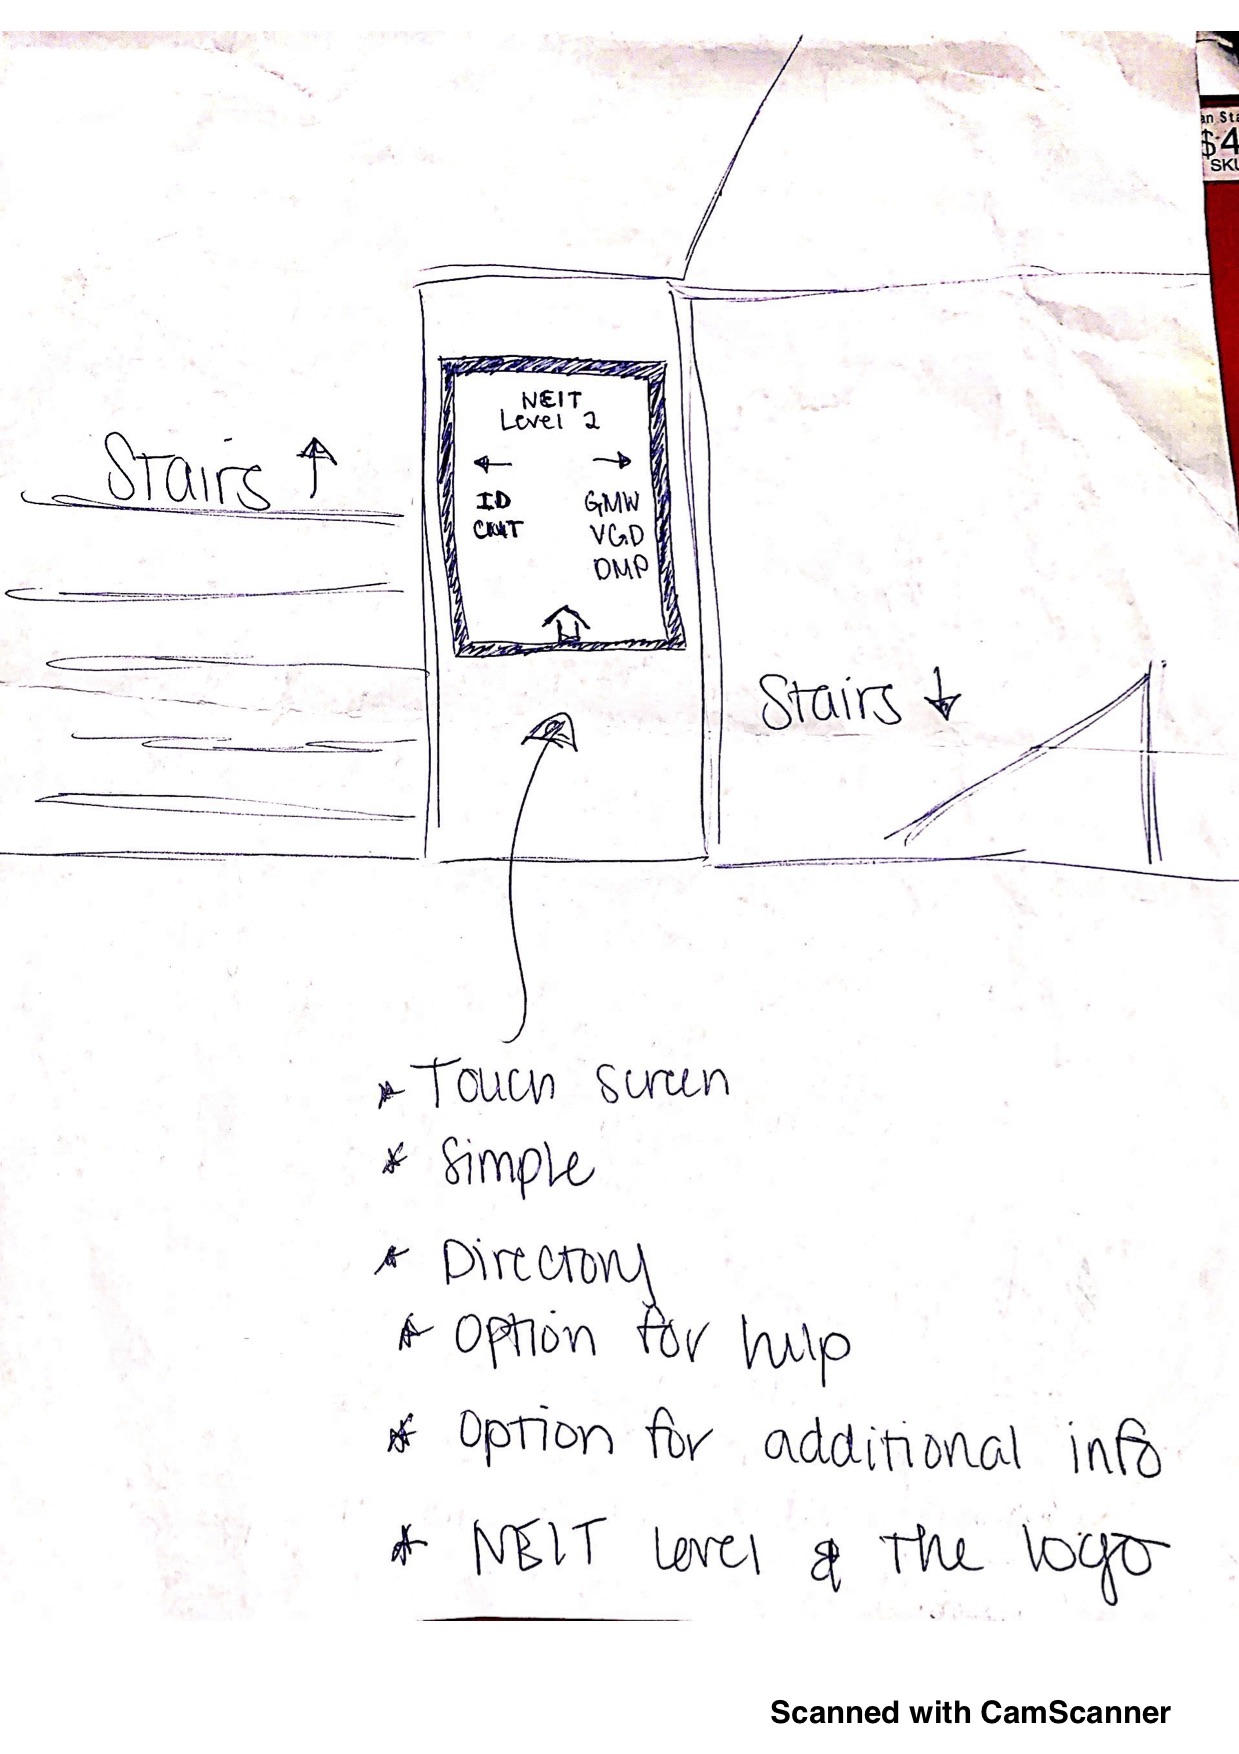 an Sta
$4
SKU
NEIT
Level 2
← →
ID GMW
VGD
DMP
Stairs ↑
Stairs ↓
* Touch screen
* Simple
* Directory
* Option for help
* Option for additional info
* NEIT level & the logo
Scanned with CamScanner